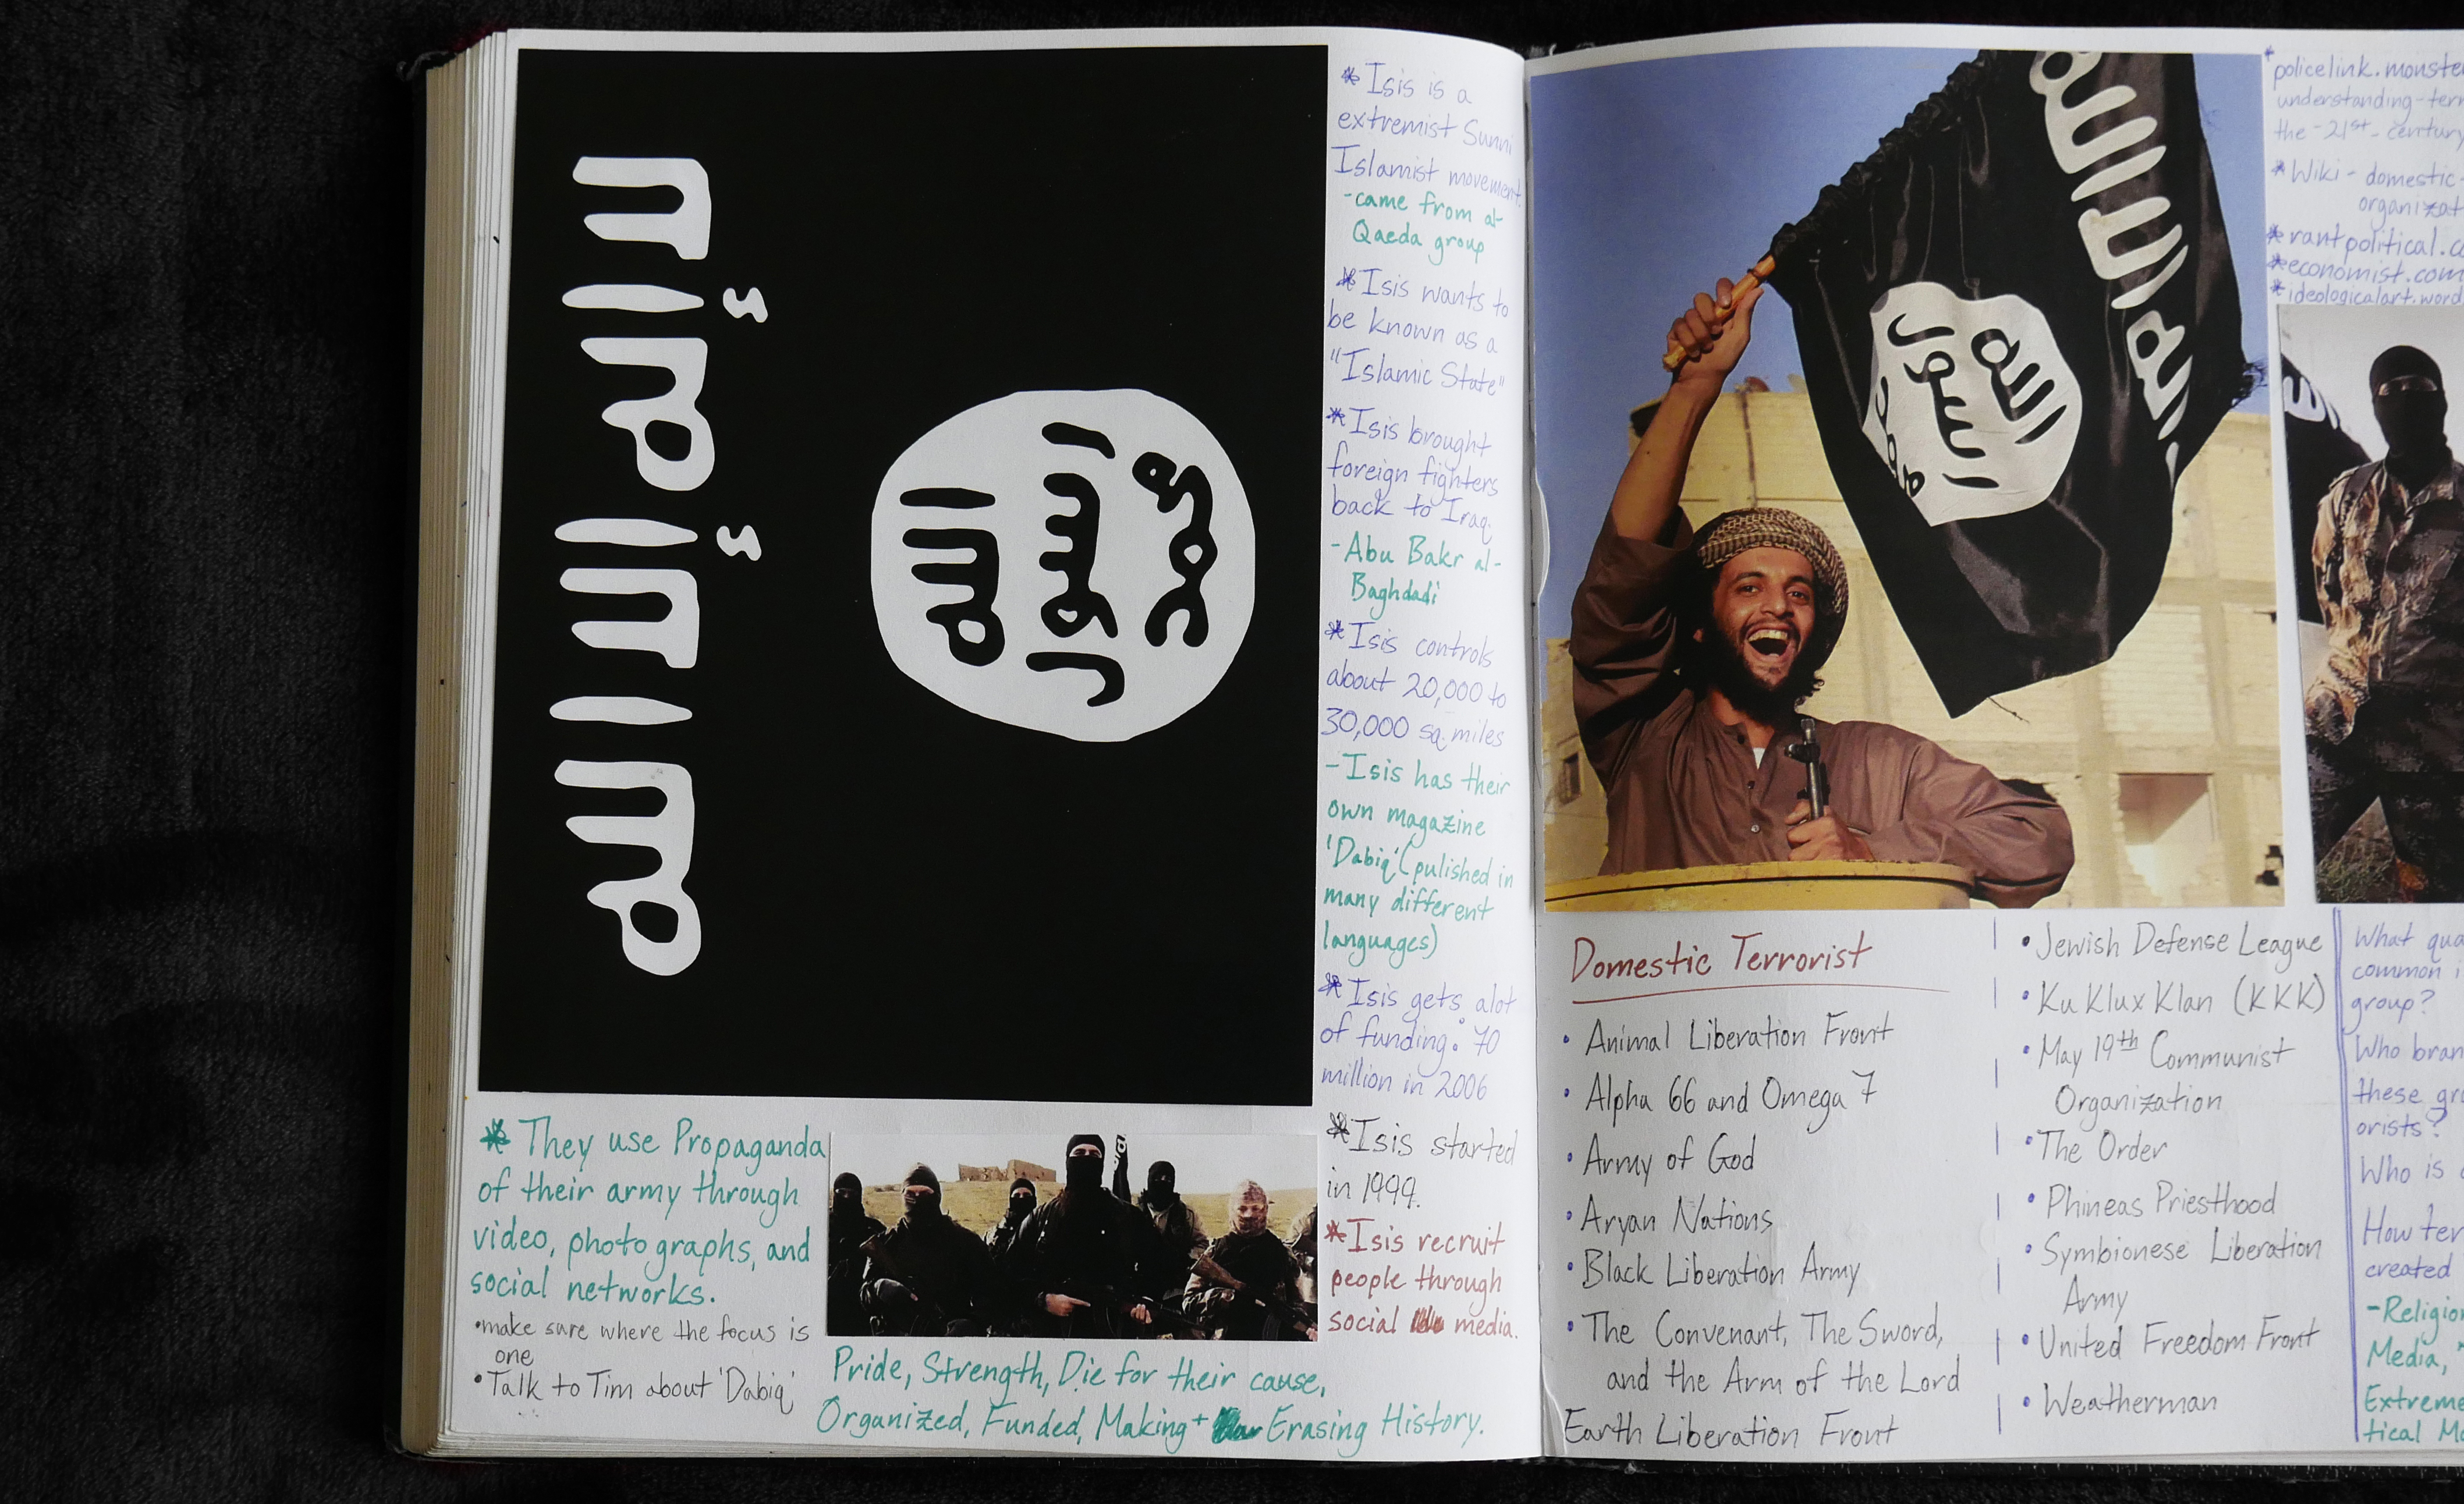 لا إله إلا الله
الله
رسول
محمد
* Isis is a
extremist Sunni
Islamist movement.
- came from al-
Qaeda group
* Isis wants to
be known as a
"Islamic State"
* Isis brought
foreign fighters
back to Iraq.
- Abu Bakr al-
Baghdadi
* Isis controls
about 20,000 to
30,000 sq. miles
- Isis has their
own magazine
'Dabiq' (pulished in
many different
languages)
* Isis gets alot
of funding: 70
million in 2006
* Isis started
in 1999.
* Isis recruit
people through
social media.
* They use Propaganda
of their army through
video, photographs, and
social networks.
• make sure where the focus is
one
• Talk to Tim about 'Dabiq'
Pride, Strength, Die for their cause,
Organized, Funded, Making + Erasing History.
الله
رسول
محمد
* policelink.monste
understanding-terr
the-21st-century
* Wiki - domestic-
organizat
* rantpolitical.co
* economist.com
* ideologicalart.word
Domestic Terrorist
• Animal Liberation Front
• Alpha 66 and Omega 7
• Army of God
• Aryan Nations
• Black Liberation Army
• The Convenant, The Sword,
and the Arm of the Lord
Earth Liberation Front
• Jewish Defense League
• Ku Klux Klan (KKK)
• May 19th Communist
Organization
• The Order
• Phineas Priesthood
• Symbionese Liberation
Army
• United Freedom Front
• Weatherman
What qua
common i
group?
Who bran
these gro
orists?
Who is
How ter
created
- Religio
Media,
Extreme
tical Mo